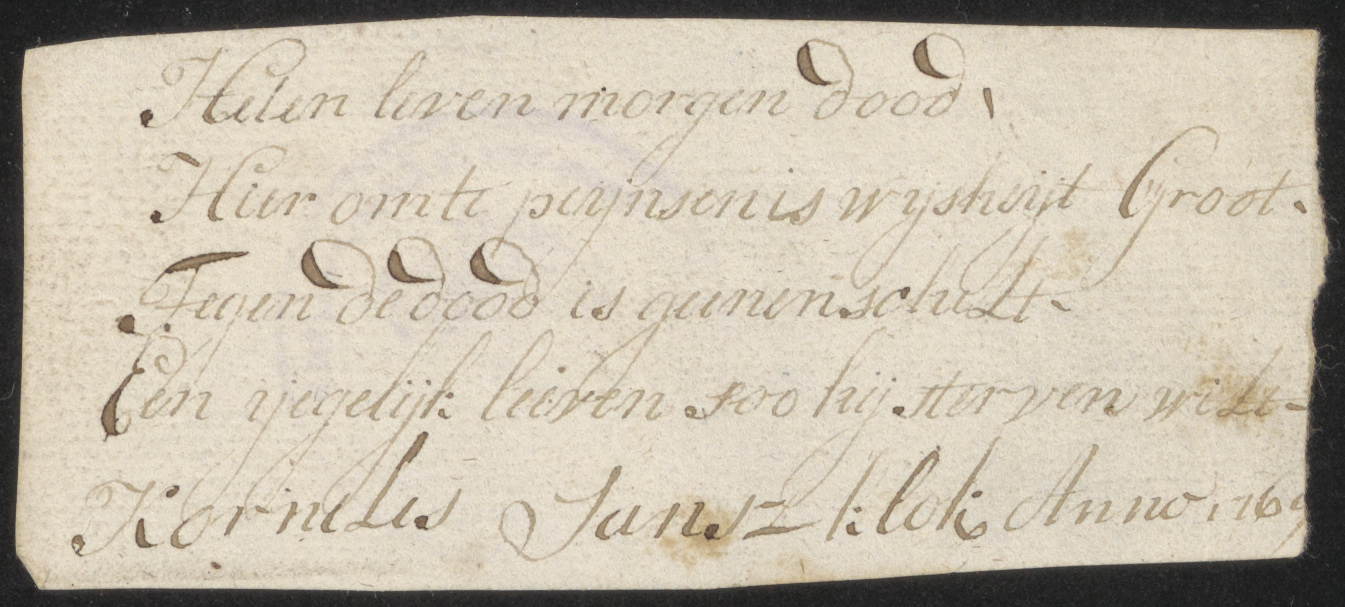 Heden leven morgen dood,
Hier om te peijnsen is wysheijt Groot.
Tegen de dood is geenen schilt-
Een yegelijk leeven soo hij sterven wilt-
Kornelis Jansz klok Anno 169